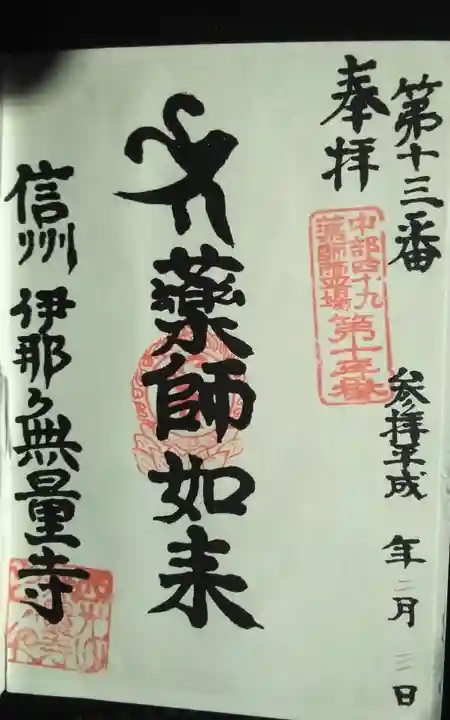 第十三番
参拝平成 年 二月 三日
奉拝
中部四十九
薬師霊場
第十三番
薬師如来
信州 伊那 無量寺